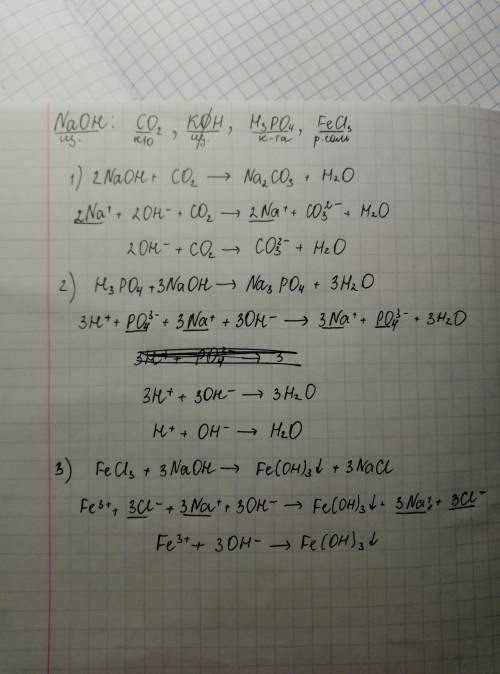 NaOH: CO₂, KOH, H₃PO₄, FeCl₃
щ. к.о щ. к-та р.соль
1) 2NaOH + CO₂ → Na₂CO₃ + H₂O
2Na⁺ + 2OH⁻ + CO₂ → 2Na⁺ + CO₃²⁻ + H₂O
2OH⁻ + CO₂ → CO₃²⁻ + H₂O
2) H₃PO₄ + 3NaOH → Na₃PO₄ + 3H₂O
3H⁺ + PO₄³⁻ + 3Na⁺ + 3OH⁻ → 3Na⁺ + PO₄³⁻ + 3H₂O
3H⁺ + PO₄³⁻ → 3
3H⁺ + 3OH⁻ → 3H₂O
H⁺ + OH⁻ → H₂O
3) FeCl₃ + 3NaOH → Fe(OH)₃↓ + 3NaCl
Fe³⁺ + 3Cl⁻ + 3Na⁺ + 3OH⁻ → Fe(OH)₃↓ + 3Na⁺ + 3Cl⁻
Fe³⁺ + 3OH⁻ → Fe(OH)₃↓